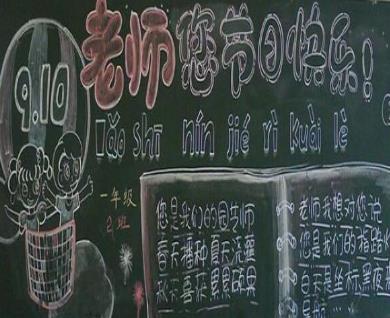 老师您节日快乐!
9.10
lǎo shī nín jié rì kuài lè
一年级
2班
您是我们的园艺师
春天播种夏天浇灌
老师我想对您说
您是我们的指路